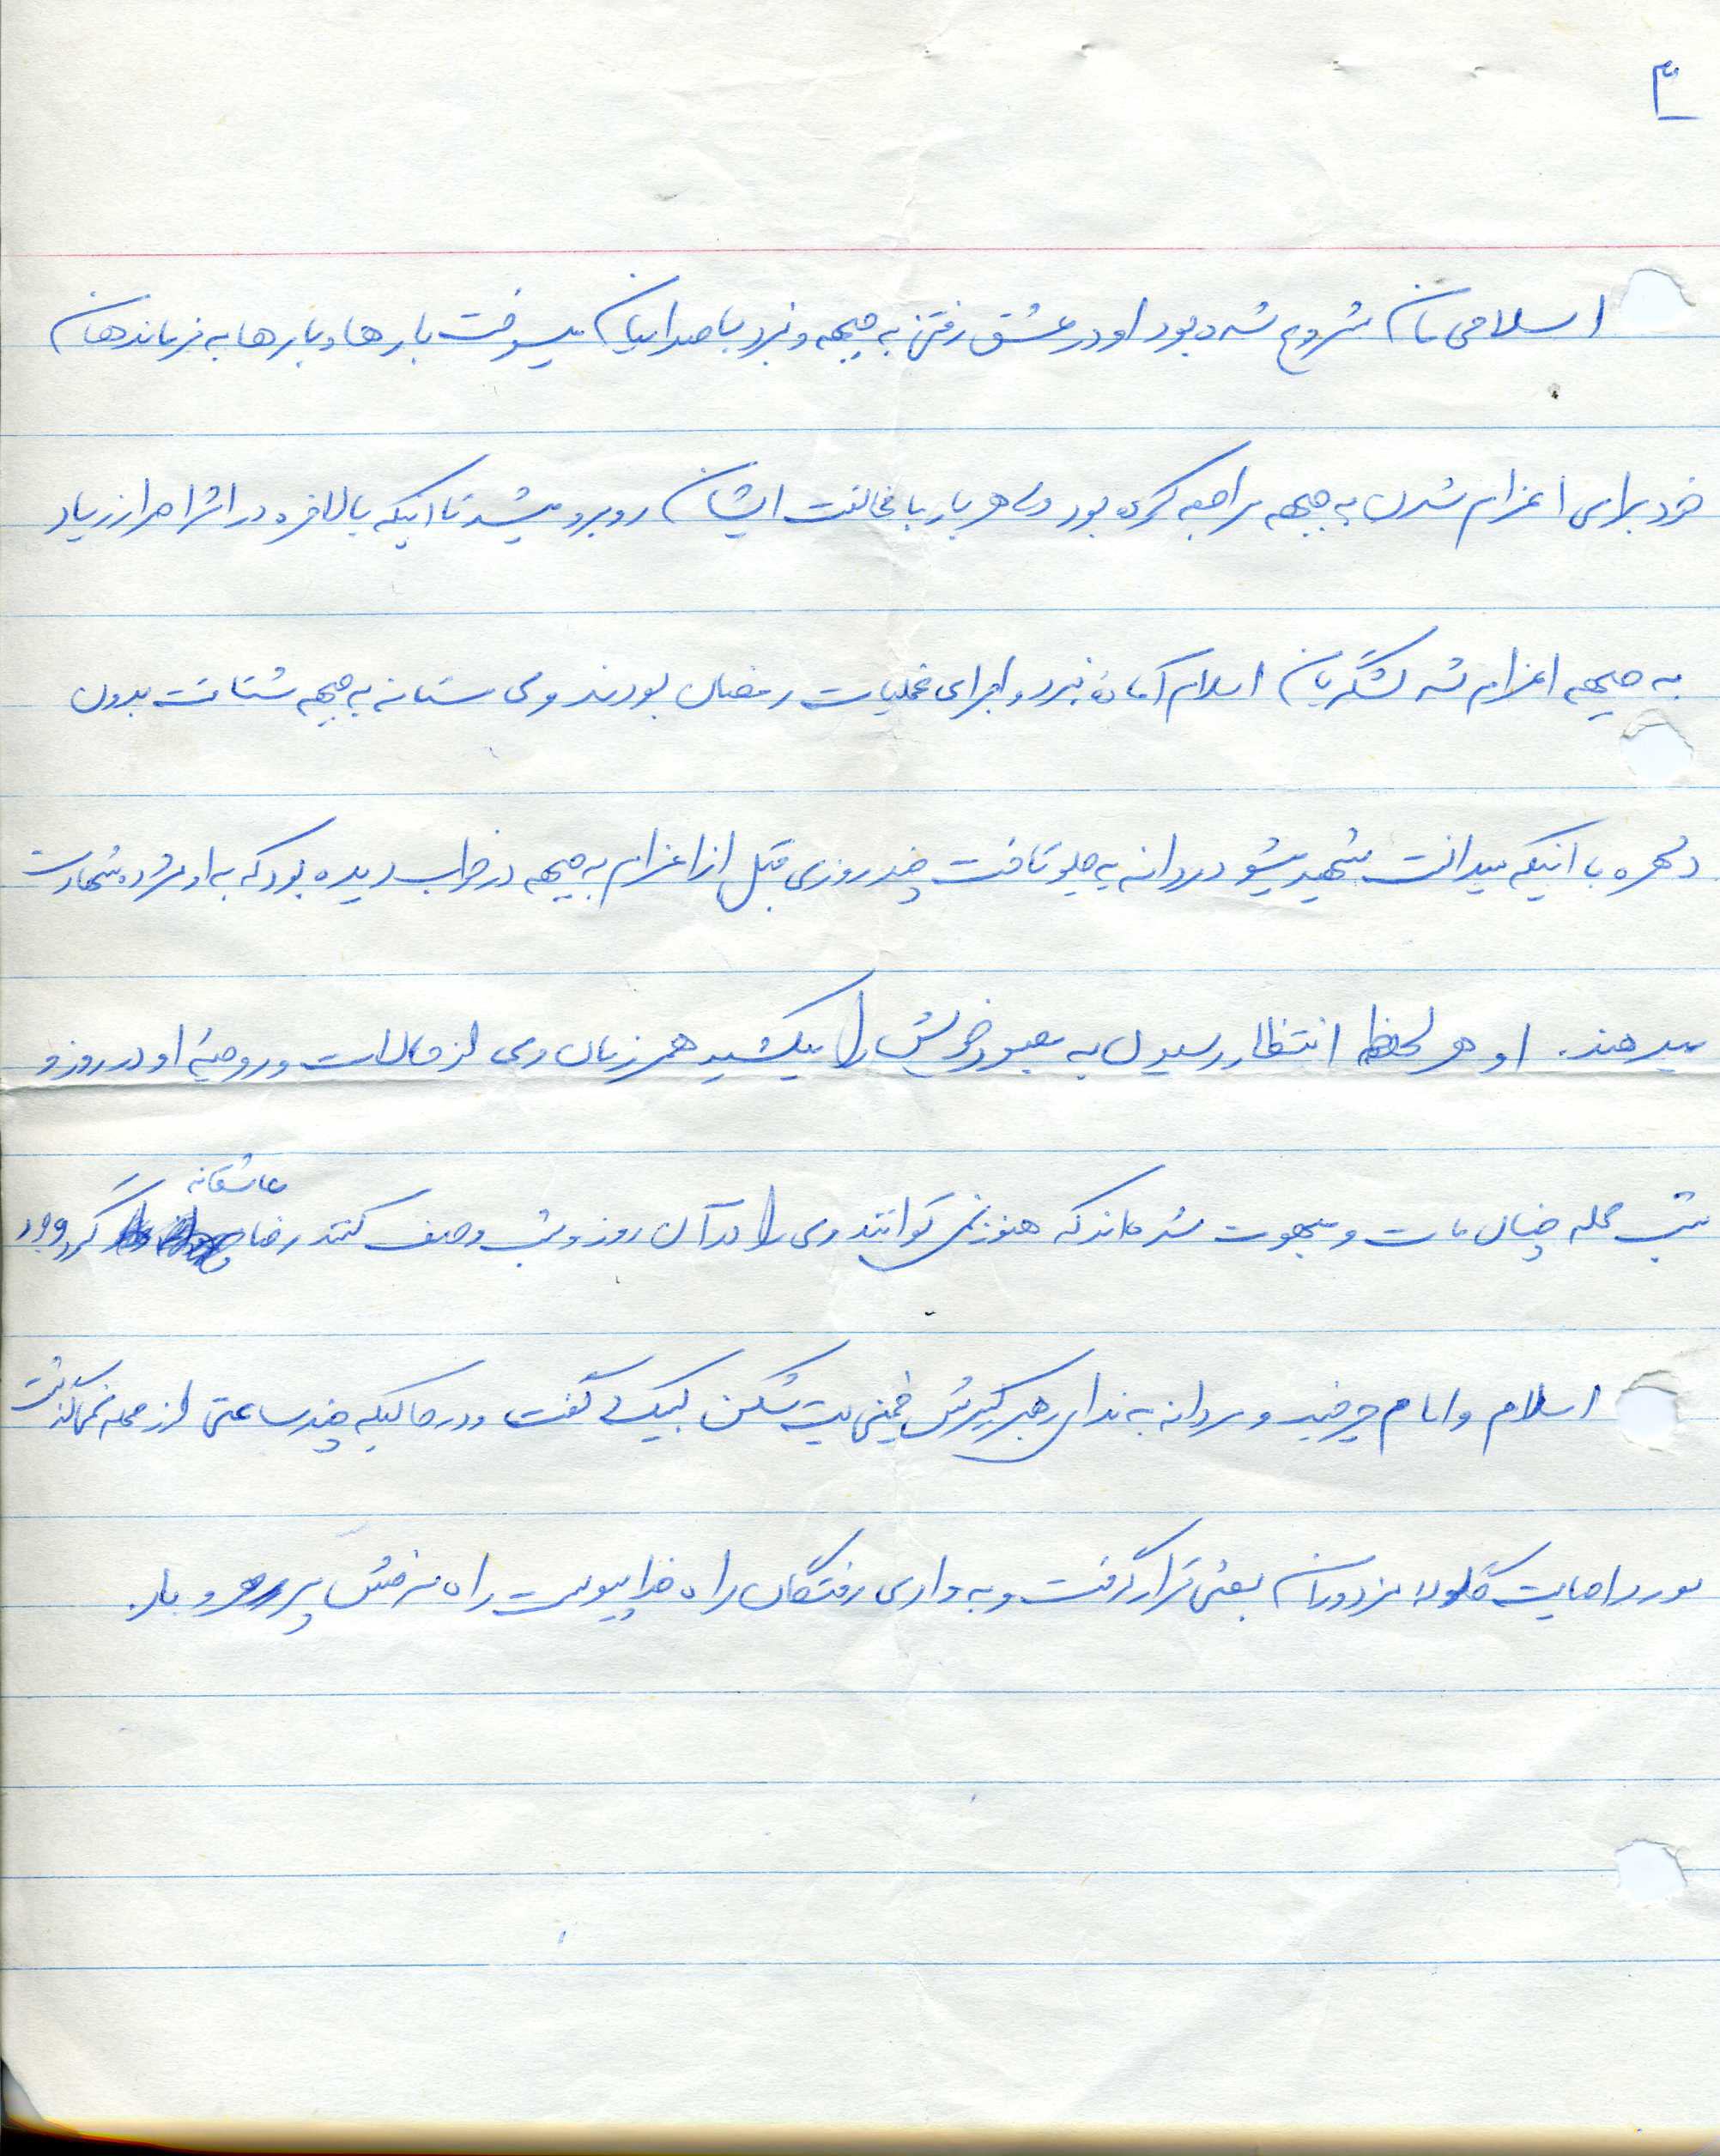 ۳
اسلامی مان شروع شده بود او در عشق رفتن به جبهه و نبرد با صدامیان میسوخت بارها و بارها به فرماندهان
خود برای اعزام شدن به جبهه مراجعه کرده بود ولی هر بار با مخالفت ایشان روبرو میشد تا اینکه بالاخره در اثر اصرار زیاد
به جبهه اعزام شد لشگریان اسلام آماده نبرد و اجرای عملیات رمضان بودند وی مستانه به جبهه شتافت بدون
دلهره با اینکه میدانست شهید میشود مردانه به جلو تاخت چند روزی قبل از اعزام به جبهه در خواب دیده بود که به او مژده شهادت
میدهند. او هر لحظه انتظار رسیدن به معبود خویش را میکشید همرزمان وی از حالات و روحیه او در روز و
شب حمله چنان مات و مبهوت شده‌اند که هنوز نمی توانند وی را در آن روز و شب وصف کنند رضا عاشقانه گرد وجود
اسلام و امام چرخید و مردانه به ندای رهبر کبیرش خمینی بت شکن لبیک گفت و در حالیکه چند ساعتی از حمله نمی گذشت
مورد اصابت گلوله مزدوران بعثی قرار گرفت و به وادی رفتگان راه خدا پیوست راه سرخش پر رهرو باد.